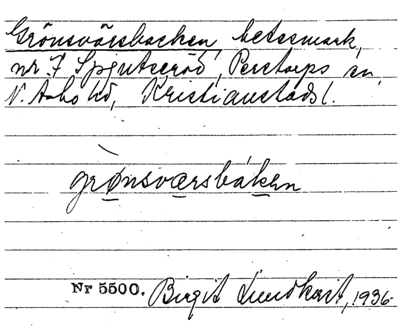 Grönsvärsbacken, betesmark,
nr 7 Spjutseröd, Perstorps sn,
N. Åsbo hd, Kristianstads l.
grǿnsværsbáken
Nr 5500. Birgit Lundkvist, 1936.